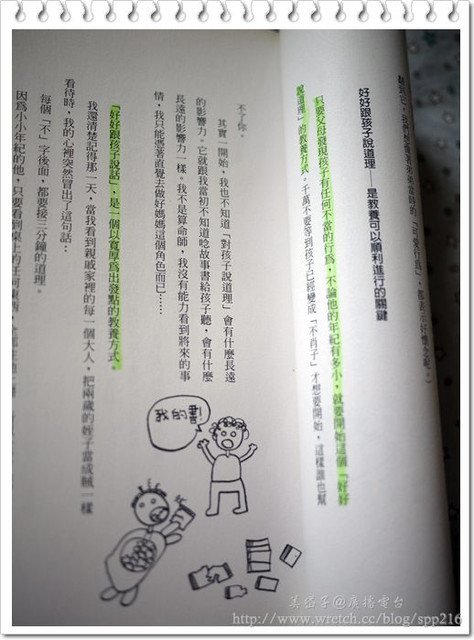 好好跟孩子說道理——是教養可以順利進行的關鍵
只要父母發現孩子有任何不當的行為，不論他的年紀有多小，就要開始這個「好好
說道理」的教養方式。千萬不要等到孩子已經變成「不肖子」才想要開始，這樣誰也幫
不了你。
其實一開始，我也不知道「對孩子說道理」會有什麼長遠
的影響力。它就跟我當初不知道唸故事書給孩子聽，會有什麼
長遠的影響力一樣。我不是算命師，我沒有能力看到將來的事
情，我只能憑著直覺去做好媽媽這個角色而已……
「好好跟孩子說話」，是一個以寬厚為出發點的教養方式。
我還清楚記得那一天，當我看到親戚家裡的每一個大人，把兩歲的姪子當成賊一樣
看待時，我的心裡突然冒出了這句話：
每個「不」字後面，都要接三分鐘的道理。
因為小小年紀的他，只要看到桌上的任何東西，
我的書!
美盛子@廣播電台
http://www.wretch.cc/blog/spp216